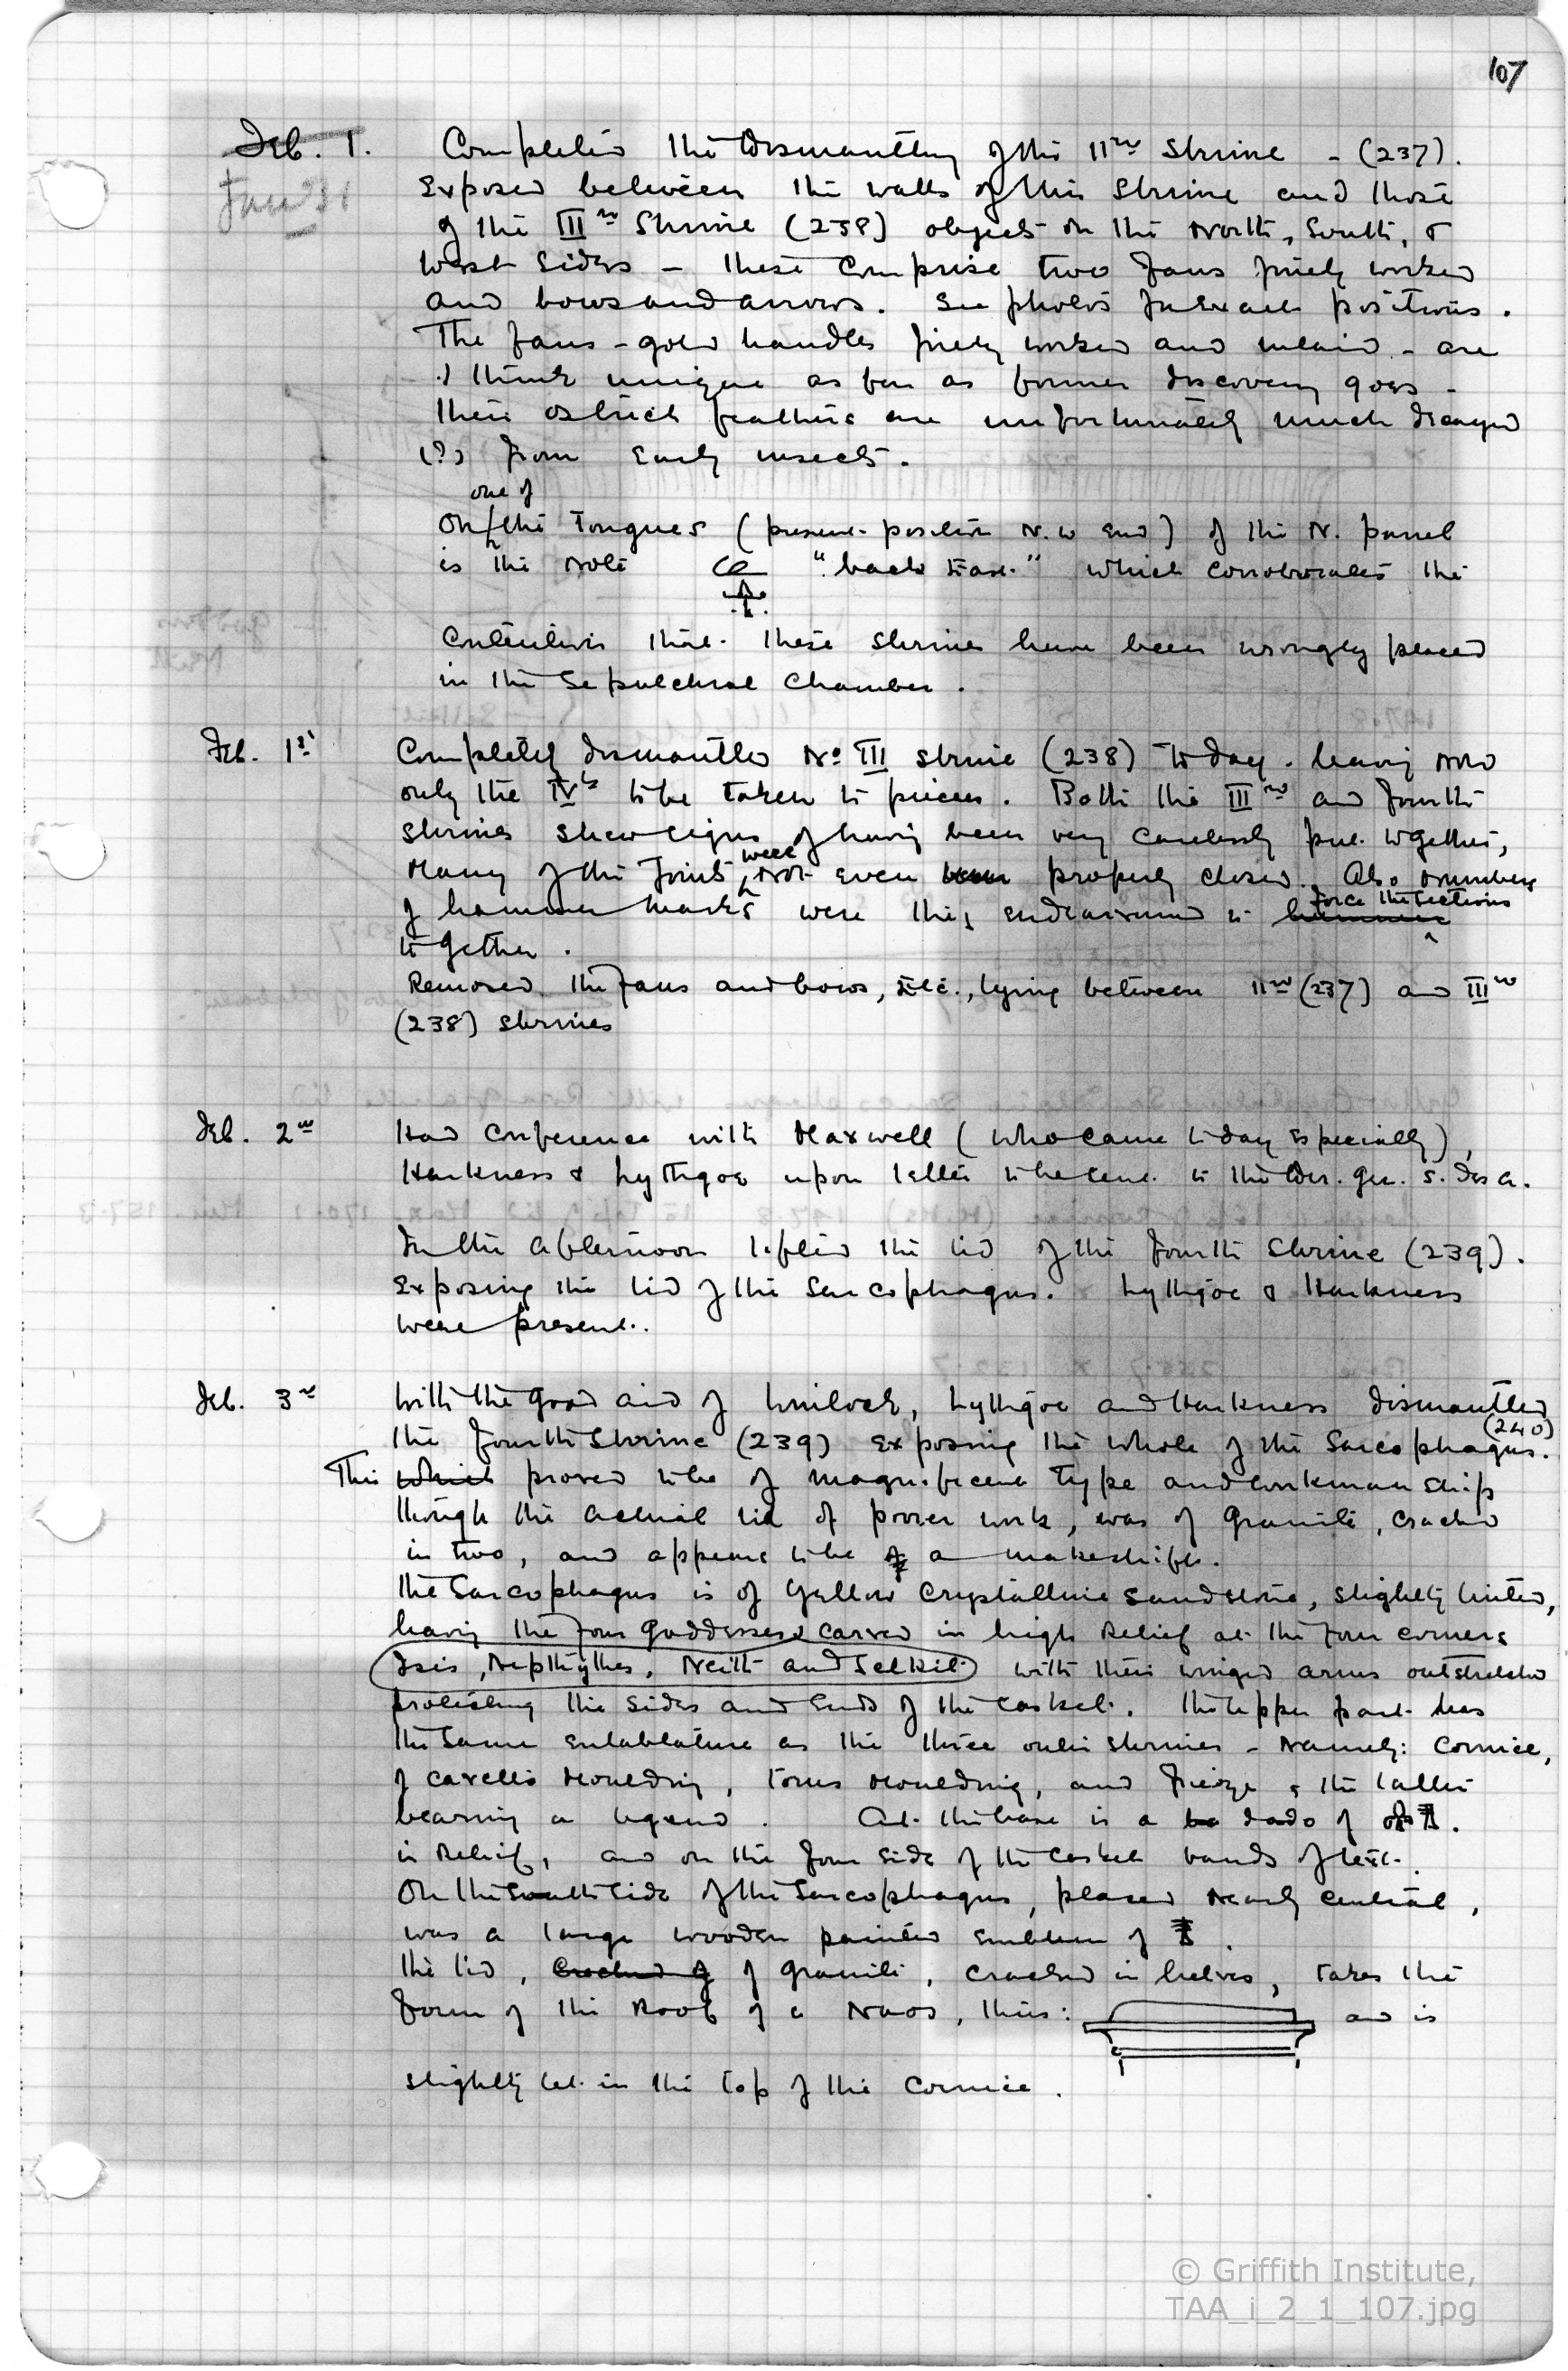 107
Feb. 1. Completed the dismantling of the IInd Shrine - (237).
Jan 31 Exposed between the walls of this Shrine and those
of the IIIrd Shrine (238) objects on the North, South, &
West Sides - these comprise two fans finely worked
and bows and arrows. See photos for exact positions.
The fans - gold handles finely worked and inlaid - are
I think unique as far as former discovery goes -
their ostrich feathers are unfortunately much decayed
(?) from early insects.
one of
On the Tongues (present position N.W end) of the N. panel
is the note "back East" which corroborates the
contention that these shrines have been wrongly placed
in the Sepulchral Chamber.
Feb. 1st Completely dismantled No III shrine (238) to day. leaving now
only the IVth to be taken to pieces. Both the IIIrd and fourth
shrines shew signs of having been very carelessly put together,
Many of the joints were not even been properly closed. Also numbers
of hammer marks were they endeavoured to force the sections
together.
Removed the fans and bows, etc., lying between IInd (237) and IIIrd
(238) shrines
Feb. 2nd Had conference with Maxwell (who came to day especially),
Harkness & Lythgoe upon letter to be sent to the Dir. Gen. S. des A.
In the afternoon lifted the lid of the fourth Shrine (239).
Exposing the lid of the Sarcophagus. Lythgoe & Harkness
were present.
Feb. 3rd With the good aid of Winlock, Lythgoe and Harkness dismantled
the fourth Shrine (239) exposing the whole of the Sarcophagus. (240)
This which proved to be of magnificent type and workmanship
though the actual lid of poorer work, was of granite, cracked
in two, and appears to be of a makeshift.
The Sarcophagus is of yellow crystalline sandstone, slightly tinted,
having the four goddesses carved in high relief at the four corners
Isis, Nephthys, Neith and Selkit with their winged arms outstretched
protecting the sides and ends of the casket. The upper part has
the same entablature as the three outer shrines - namely: Cornice,
of cavetto moulding, torus moulding, and frieze, the latter
bearing a legend. At the base is a dado of
in relief, and on the four side of the casket bands of text.
On the South side of the Sarcophagus, placed nearly central,
was a large wooden painted emblem of
The lid, cracked of of granite, cracked in halves, takes the
form of the Roof of a Naos, thus: and is
slightly let in the top of the cornice.
© Griffith Institute,
TAA_i_2_1_107.jpg